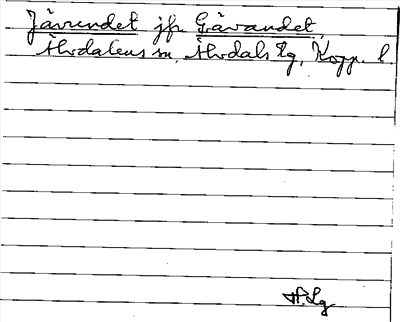 Jävundet jfr Gävandet,
Älvdalens sn, Älvdals tg, Kopp. l.
H.Lg